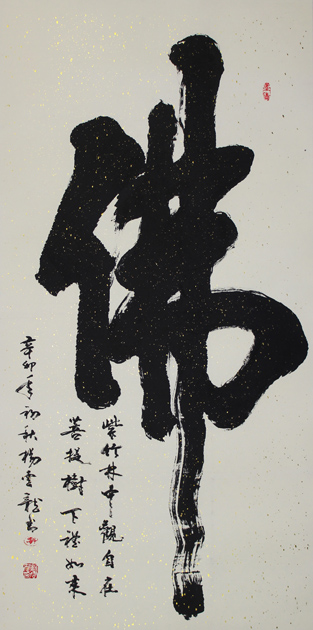 佛
紫竹林中觀自在
菩提樹下禮如来
辛卯年初秋楊雲龍書